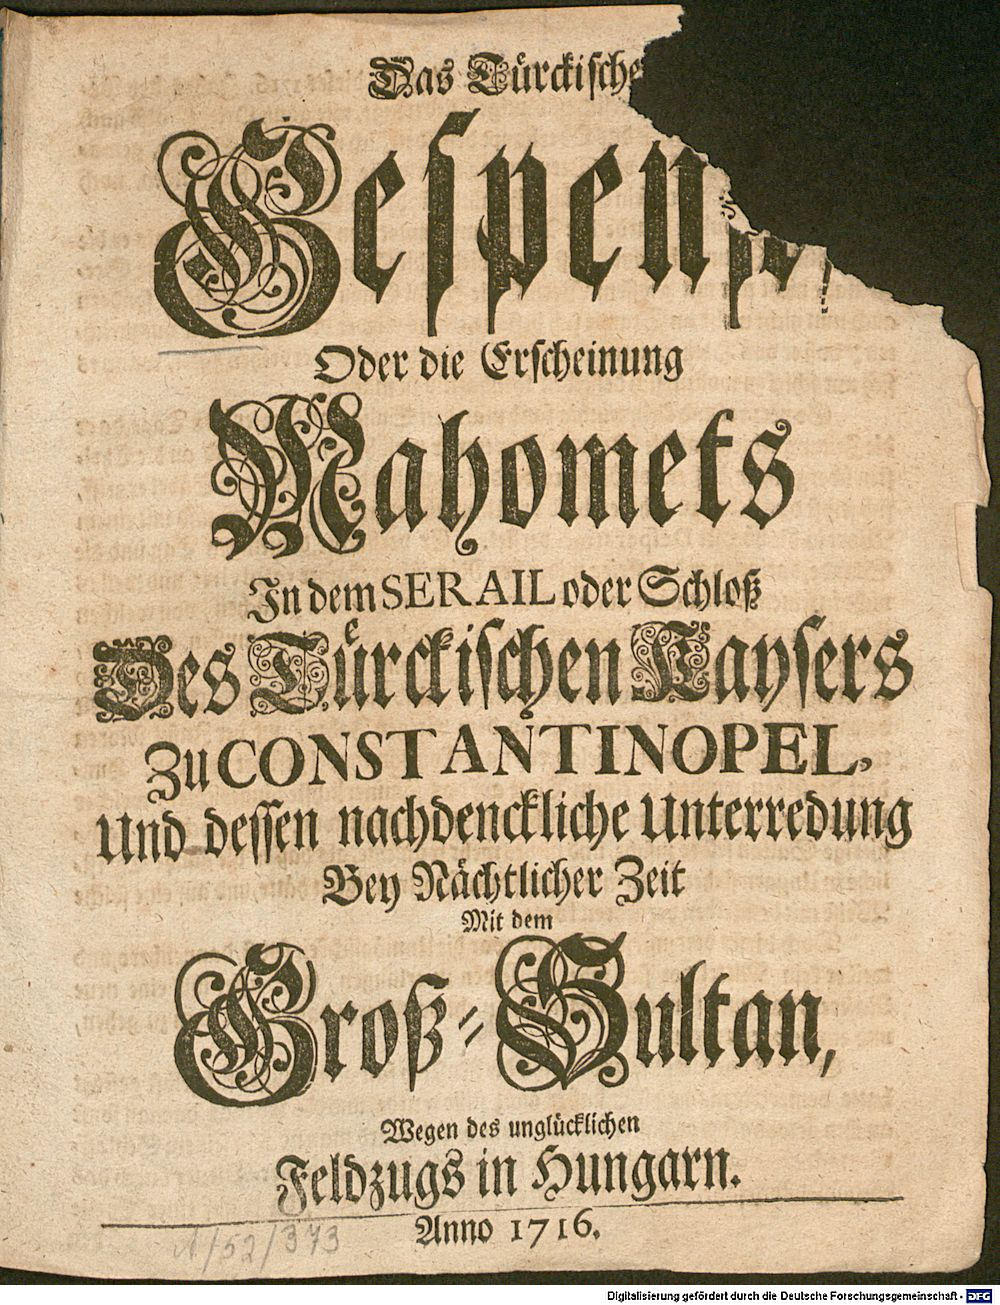 Das Türckische
Gespenst,
Oder die Erscheinung
Mahomets
In dem SERAIL oder Schloß
Des Türckischen Kaysers
Zu CONSTANTINOPEL,
Und dessen nachdenckliche Unterredung
Bey Nächtlicher Zeit
Mit dem
Groß-Sultan,
Wegen des unglücklichen
Feldzugs in Hungarn.
Anno 1716.
A/52/373
Digitalisierung gefördert durch die Deutsche Forschungsgemeinschaft - DFG